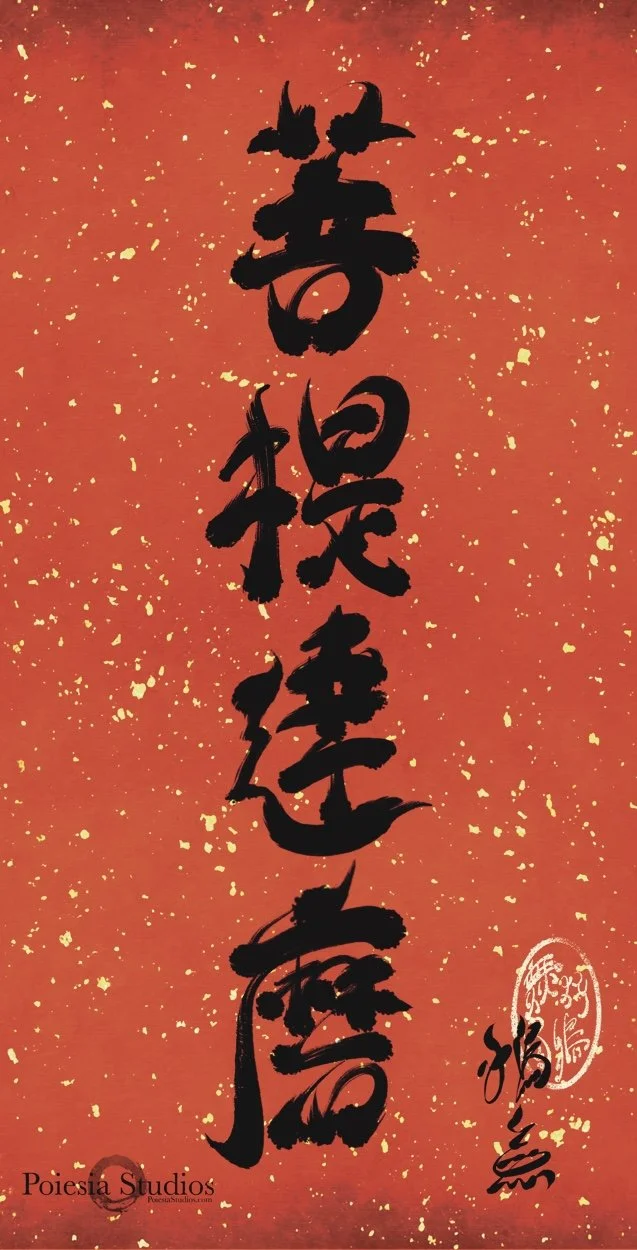 菩提達磨
Poiesia Studios
PoiesiaStudios.com